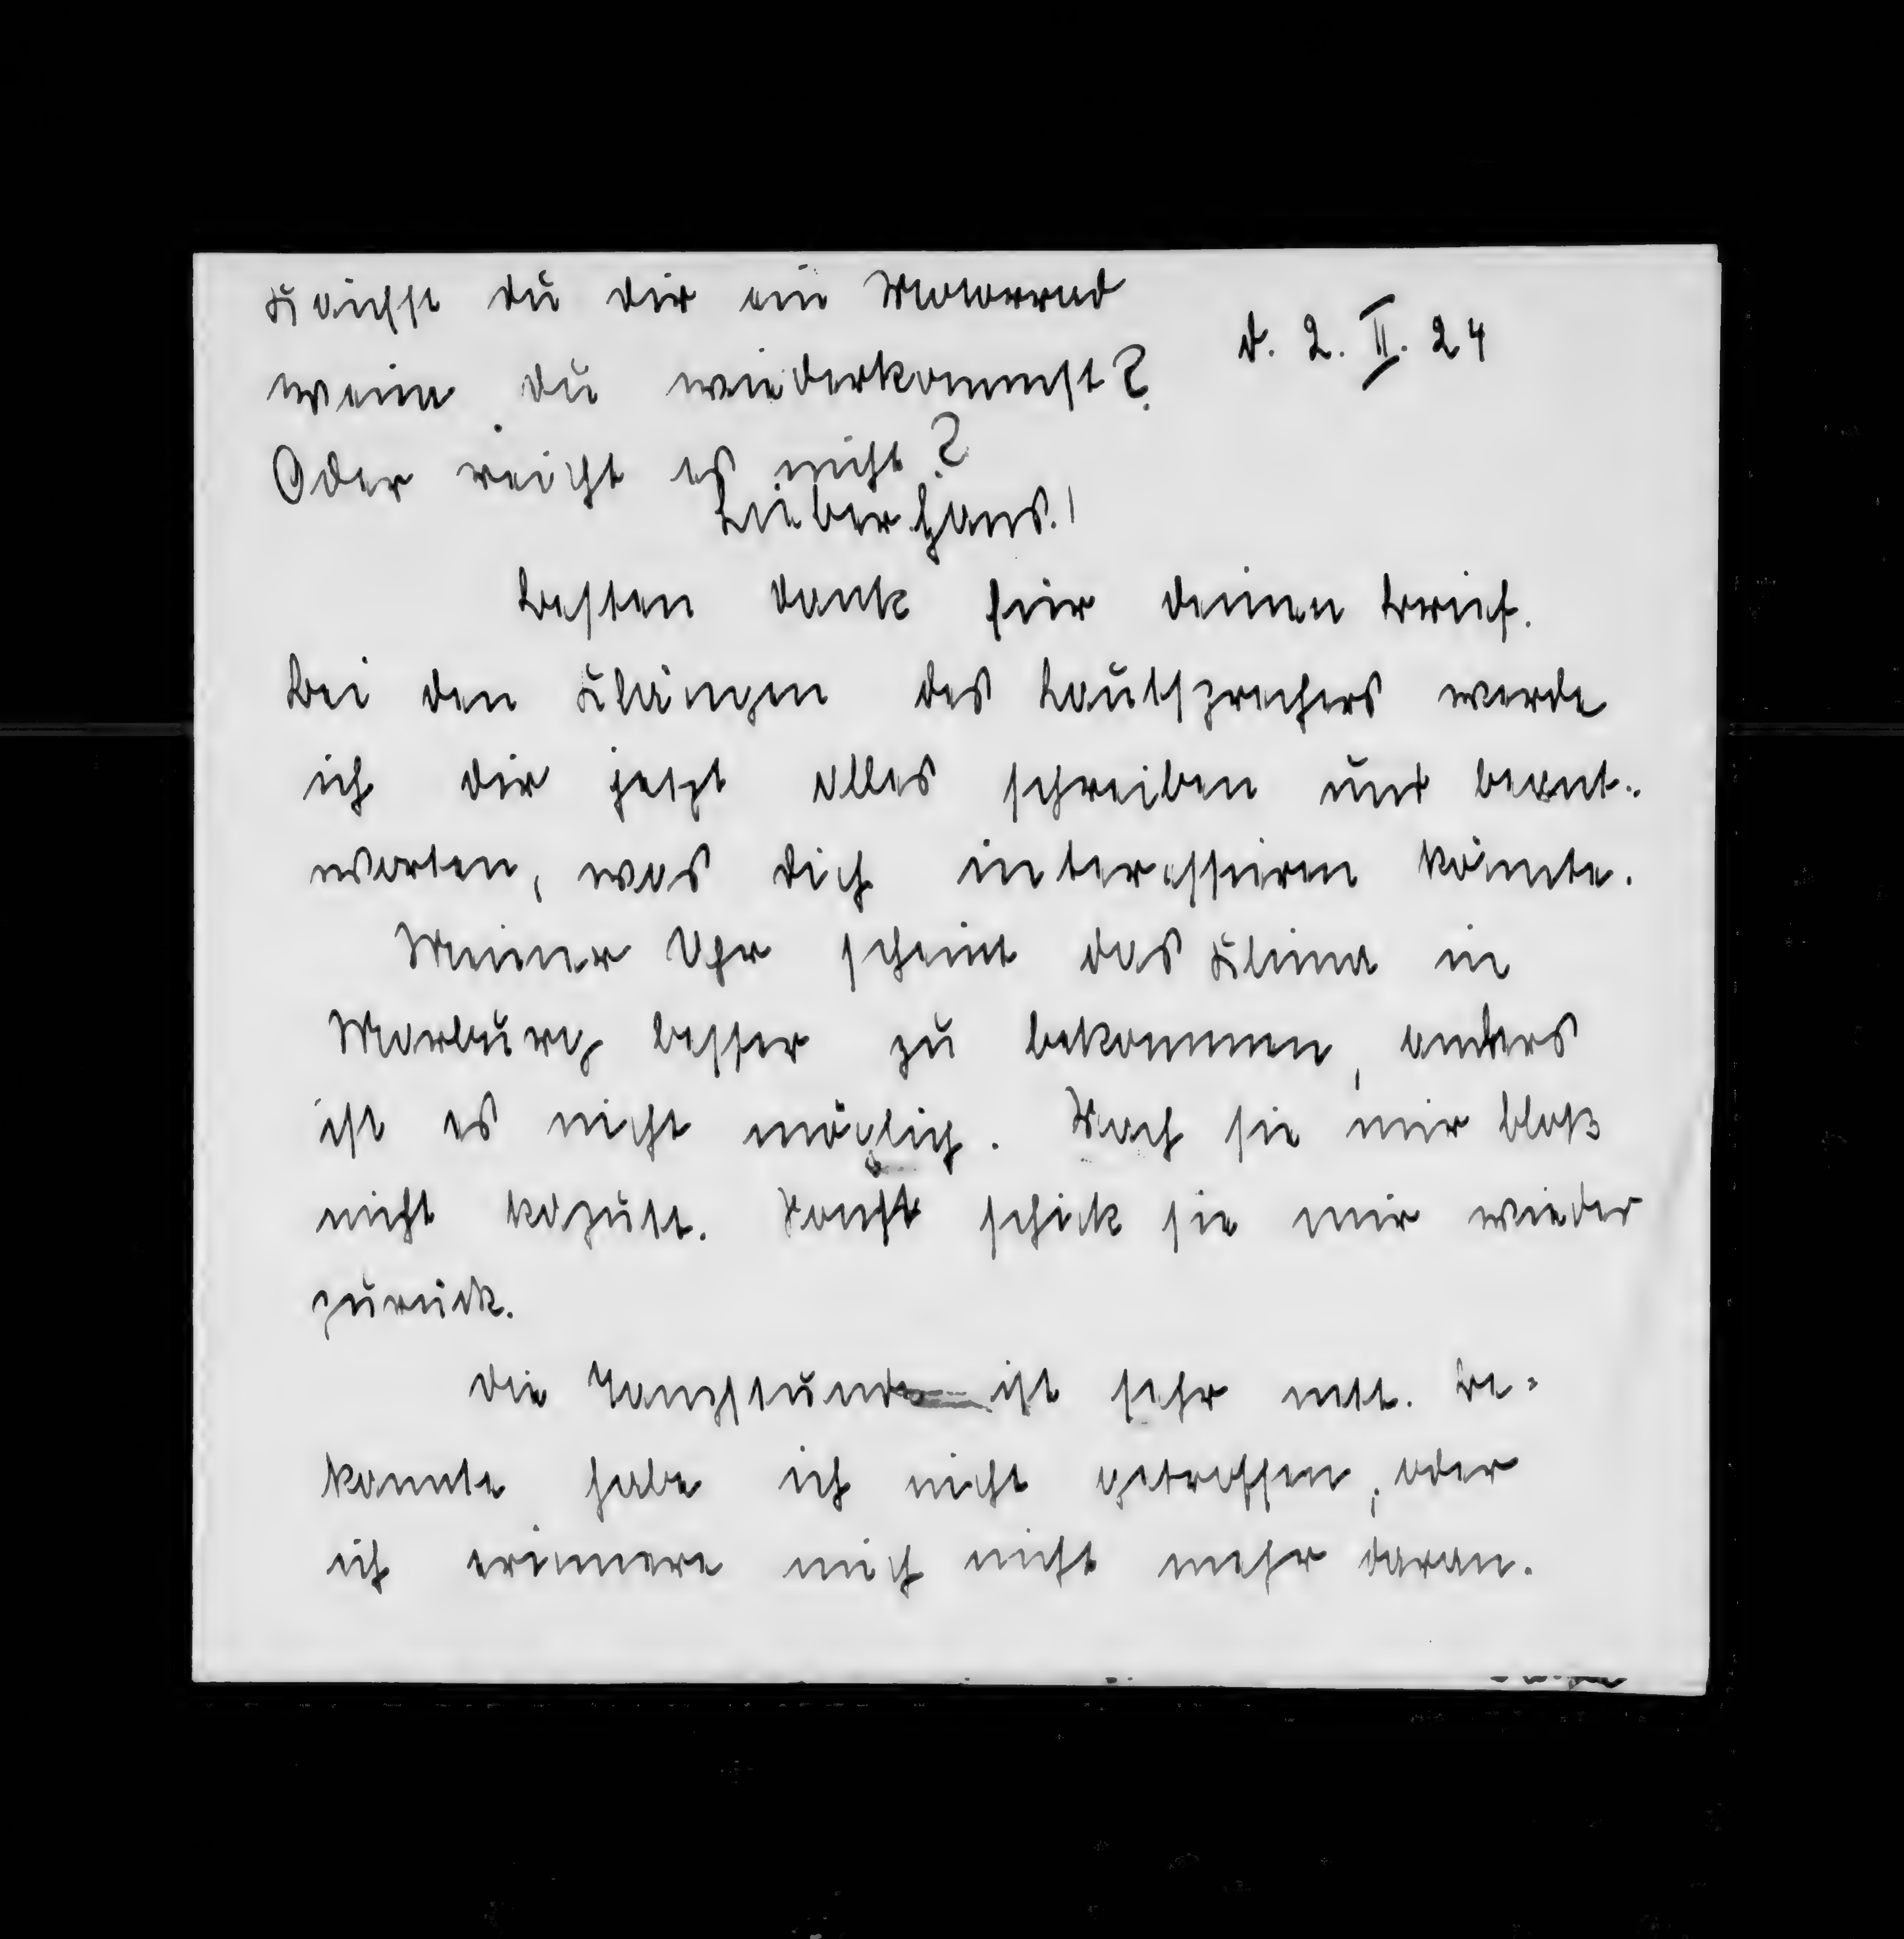 Kaufst du dir ein Motorrad
wenn du wiederkommst?
d. 2. II. 24
Oder reicht es nicht?
Lieber Hans!
Besten Dank für deinen Brief.
Bei den Klängen des Lautsprechers werde
ich dir jetzt alles schreiben und beant-
worten, was dich interessieren könnte.
Meiner Uhr scheint das Klima in
Marburg besser zu bekommen, anders
ist es nicht möglich. Mach sie mir bloß
nicht kaputt. Sonst schick sie mir wieder
zurück.
Die Tanzstunde ist sehr nett. Be-
kannte habe ich nicht getroffen, oder
ich erinnere mich nicht mehr daran.